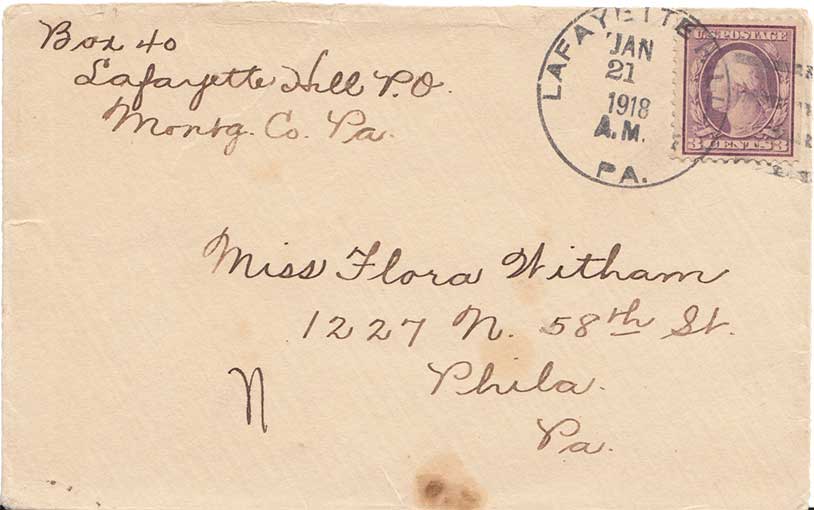 Box 40
Lafayette Hill P.O.
Montg. Co. Pa.
LAFAYETTE HILL
JAN
21
1918
A.M.
PA.
U.S. POSTAGE
3 CENTS 3
Miss Flora Witham
1227 N. 58th St.
Phila.
Pa.
N